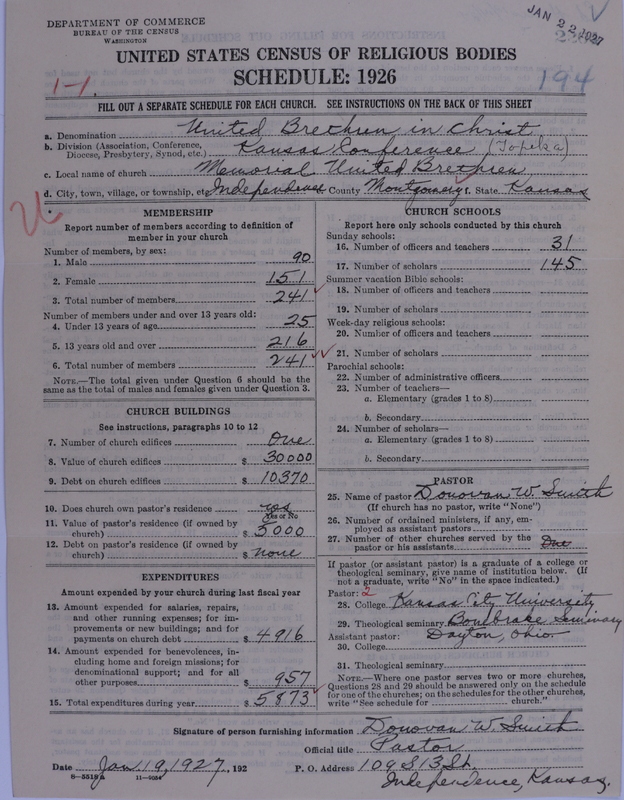 DEPARTMENT OF COMMERCE
BUREAU OF THE CENSUS
WASHINGTON
JAN 22 1927
UNITED STATES CENSUS OF RELIGIOUS BODIES
SCHEDULE: 1926
1-1
194
FILL OUT A SEPARATE SCHEDULE FOR EACH CHURCH. SEE INSTRUCTIONS ON THE BACK OF THIS SHEET
a. Denomination United Brethren in Christ
b. Division (Association, Conference, Diocese, Presbytery, Synod, etc.) Kansas Conference (Topeka)
c. Local name of church Memorial United Brethren
d. City, town, village, or township, etc. Independence County Montgomery f. State Kansas
MEMBERSHIP
Report number of members according to definition of
member in your church
Number of members, by sex:
1. Male 90
2. Female 151
3. Total number of members 241
Number of members under and over 13 years old:
4. Under 13 years of age 25
5. 13 years old and over 216
6. Total number of members 241
NOTE.—The total given under Question 6 should be the
same as the total of males and females given under Question 3.
CHURCH BUILDINGS
See instructions, paragraphs 10 to 12
7. Number of church edifices One
8. Value of church edifices $ 30000
9. Debt on church edifices $ 10370
10. Does church own pastor's residence yes
Yes or No
11. Value of pastor's residence (if owned by
church) $ 5000
12. Debt on pastor's residence (if owned by
church) $ none
EXPENDITURES
Amount expended by your church during last fiscal year
13. Amount expended for salaries, repairs,
and other running expenses; for im-
provements or new buildings; and for
payments on church debt $ 4916
14. Amount expended for benevolences, in-
cluding home and foreign missions; for
denominational support; and for all
other purposes $ 957
15. Total expenditures during year $ 5873
CHURCH SCHOOLS
Report here only schools conducted by this church
Sunday schools:
16. Number of officers and teachers 31
17. Number of scholars 145
Summer vacation Bible schools:
18. Number of officers and teachers
19. Number of scholars
Week-day religious schools:
20. Number of officers and teachers
21. Number of scholars
Parochial schools:
22. Number of administrative officers
23. Number of teachers—
a. Elementary (grades 1 to 8)
b. Secondary
24. Number of scholars—
a. Elementary (grades 1 to 8)
b. Secondary
PASTOR
25. Name of pastor Donovan W. Smith
(If church has no pastor, write "None")
26. Number of ordained ministers, if any, em-
ployed as assistant pastors
27. Number of other churches served by the
pastor or his assistants One
If pastor (or assistant pastor) is a graduate of a college or
theological seminary, give name of institution below. (If
not a graduate, write "No" in the space indicated.)
Pastor: 2
28. College Kansas City University
29. Theological seminary Bonebrake Seminary
Assistant pastor: Dayton, Ohio
30. College
31. Theological seminary
NOTE.—Where one pastor serves two or more churches,
Questions 28 and 29 should be answered only on the schedule
for one of the churches; on the schedules for the other churches,
write "See schedule for church."
Signature of person furnishing information Donovan W. Smith
Official title Pastor
Date Jan 19, 1927, 192 P. O. Address 109 S 13 St.
8-5518a 11-9054 Independence, Kansas.